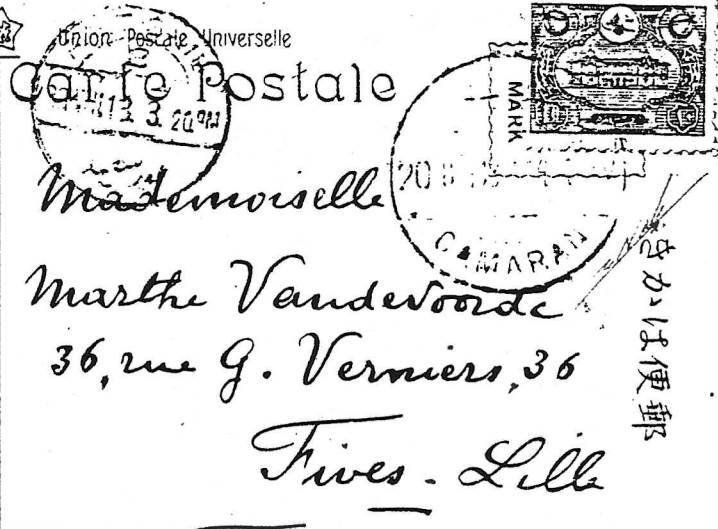 Union Postale Universelle
Carte Postale
MARK
3. 3. 20
20
CAMARAN
Mademoiselle
Marthe Vandevoorde
36, rue G. Verniers, 36
Fives - Lille
きかは便郵